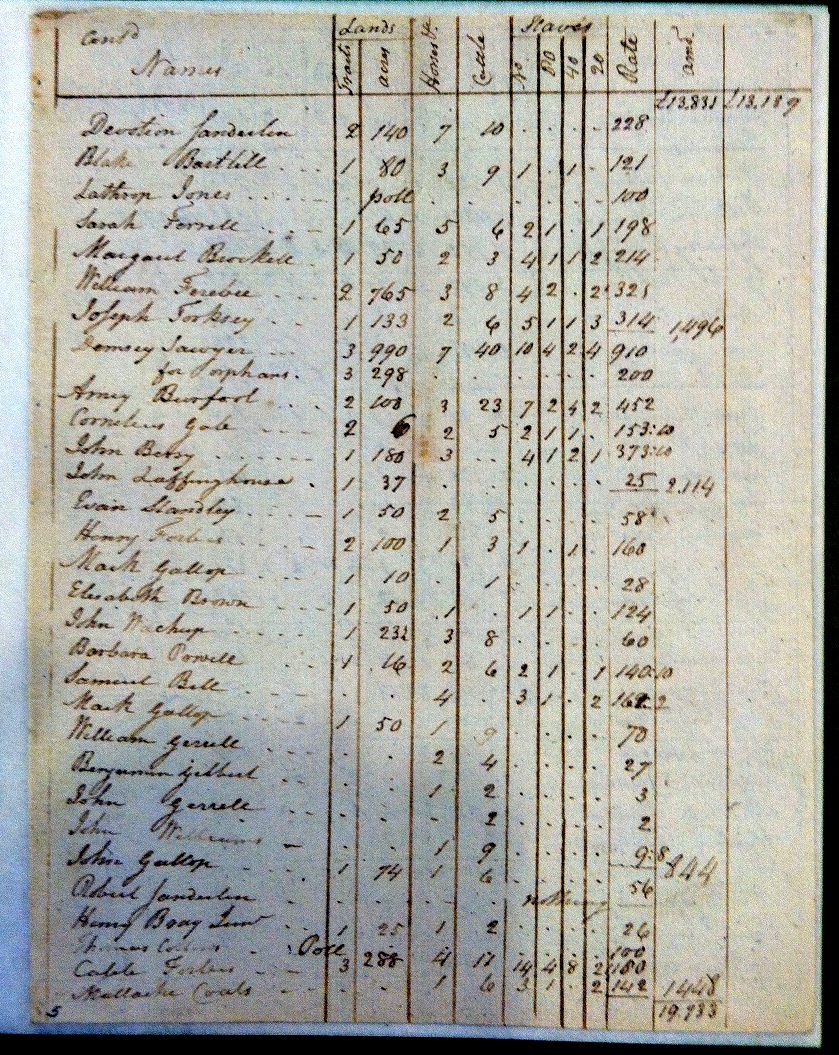 Cont'd Lands Slaves
Names acres Horses Cattle No 80 40 20 Rate amt
£13,831 £13,189
Devotion Sanderlin 2 140 7 10 . . . . 228
Blake Bartlill 1 80 3 9 1 . 1 . 121
Lathrop Jones poll 100
Sarah Ferrell 1 65 5 6 2 1 . 1 198
Margaret Brockell 1 50 2 3 4 1 1 2 214
William Ferebee 2 765 3 8 4 2 . 2 325
Joseph Torksey 1 133 2 6 5 1 1 3 314 1,496
Demsey Sawyer 3 990 7 40 10 4 2 4 910
for orphans 3 298 . . . . . . 200
Amey Burfoot 2 100 3 23 7 2 4 2 452
Cornelius Gale 2 6 2 5 2 1 1 . 153:10
John Berry 1 180 3 . 4 1 2 1 373:10
John Laffinghouse 1 37 . . . . . . 25 2,114
Evan Standley 1 50 2 5 . . . . 58
Henry Forbes 2 100 1 3 1 . 1 . 160
Mark Gallop 1 10 . 1 . . . . 28
Elisabeth Brown 1 50 1 . 1 1 . . 124
John 1 232 3 8 . . . . 60
Barbara Powell 1 16 2 6 2 1 . 1 140:10
Samuel Bell . . 4 . 3 1 . 2
Mark Gallop 1 50 1 9 . . . . 70
William Gerrell . . 2 4 . . . . 27
Benjamin Gilbert . . 1 2 . . . . 3
John Gerrell . . . 2 . . . . 2
John Williams . . 1 9 . . . . 9:8 844
John Gallop 1 74 1 6 . . . . 56
Robert Sanderlin nothing
Henry Bray Junr 1 25 1 2 . . . . 26
Thomas Poll 100
Caleb Forbes 3 288 4 17 14 4 8 2 1180
Mallachi Coats . . 1 6 3 1 . 2 142 1448
5 19,733